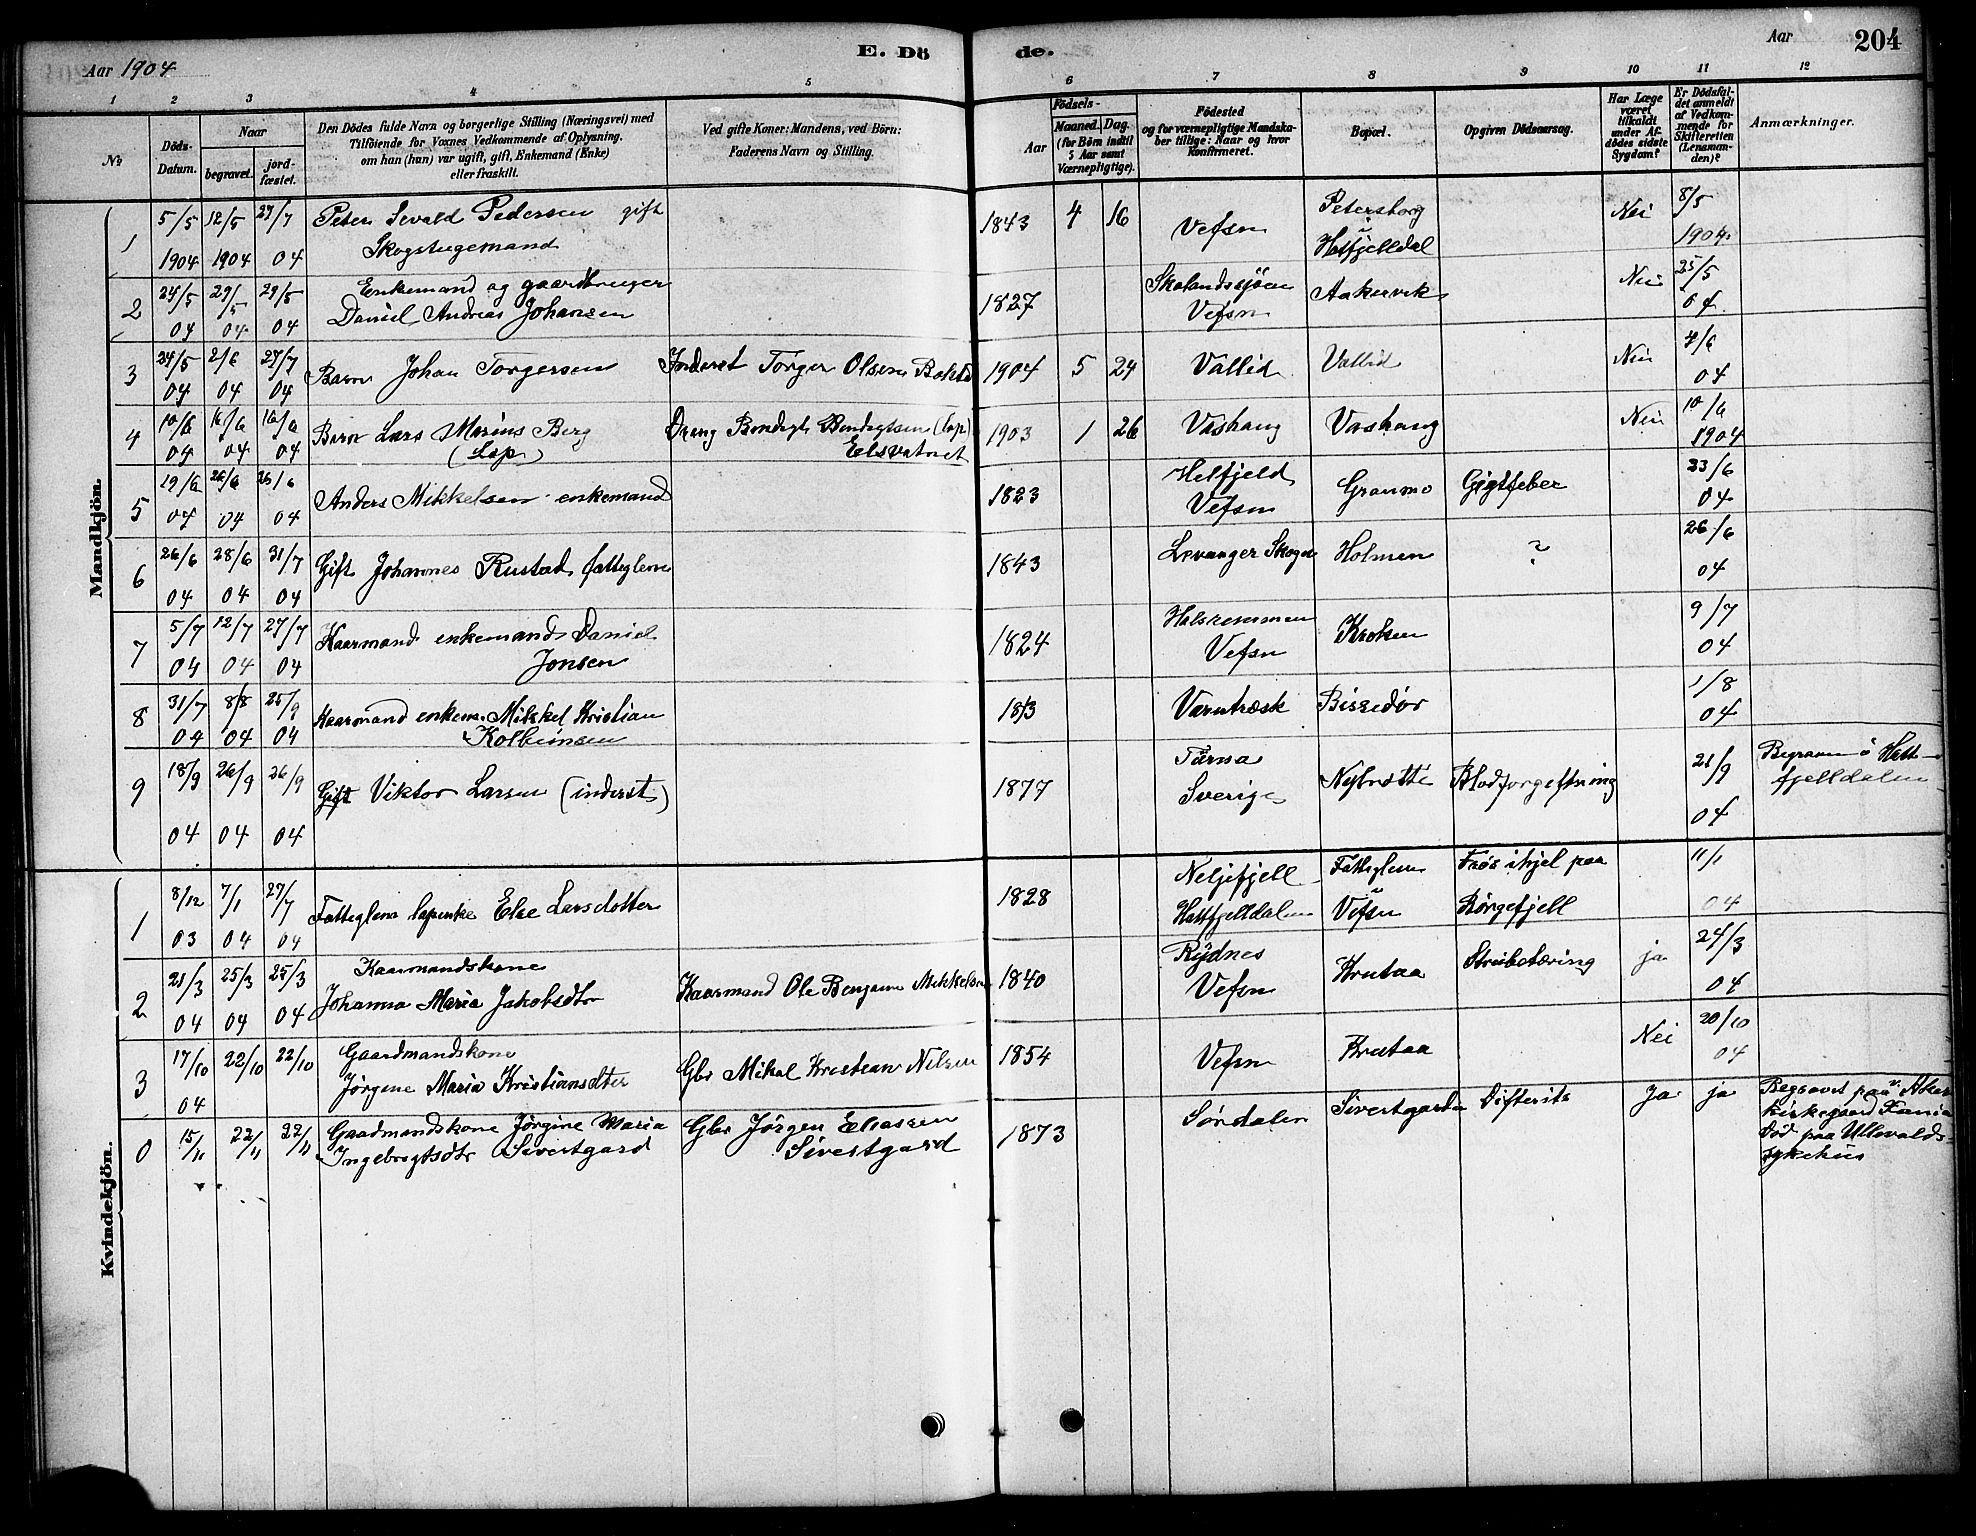 Aar 1904
E. Dö
de.
Aar
204
1 2 3 4 5 6 7 8 9 10 11 12
№
Döds-
Datum.
Naar
begravet.
jord-
fæstet.
Den Dödes fulde Navn og borgerlige Stilling (Næringsvei) med
Tilföiende for Voxnes Vedkommende af Oplysning,
om han (hun) var ugift, gift, Enkemand (Enke)
eller fraskilt.
Ved gifte Koner: Mandens, ved Börn:
Faderens Navn og Stilling.
Födsels-
Aar
Maaned. Dag.
(for Börn indtil
5 Aar samt
Værnepligtige).
Födested
og for værnepligtige Mandska-
ber tillige: Naar og hvor
Konfirmeret.
Bopæl.
Opgiven Dödsaarsag.
Har Læge
været
tilkaldt
under Af-
dödes sidste
Sygdom?
Er Dödsfal-
det anmeldt
af Vedkom-
mende for
Skifteretten
(Lensman-
den)?
Anmærkninger.
Mandkjön.
1 5/5 12/5 27/7 Peter Sevald Pedersen gift 1843 4 16 Vefsn Petersborg Nei 8/5
1904 1904 04 Skogstuemand Hatfjelldal 1904
2 24/5 29/5 29/5 Enkemand og gaardbruger 1827 Aakervik Nei 25/5
04 04 04 Daniel Andreas Johansen Vefsn 04
3 24/5 2/6 27/7 Barn Johan Torgersen Inderst Torger Olsen 1904 5 24 Vallid Vallid Nei 4/6
04 04 04 04
4 10/6 16/6 16/6 Barn Lars Marius Berg Dreng Bendigt Bendigtsen (lap) 1903 1 26 Vashaug Vashaug Nei 10/6
04 04 04 (Lap) Elsvatnet 1904
5 19/6 26/6 26/6 Anders Mikkelsen enkemand 1823 Helfjeld Granmo Gigtfeber 23/6
04 04 04 Vefsn 04
6 26/6 28/6 31/7 Gift Johannes Rustad fatteglem 1843 Levanger Skogn Holmen ? 26/6
04 04 04 04
7 5/7 12/7 27/7 Kaarmand enkemand Daniel 1824 Kroken 9/7
04 04 04 Jonsen Vefsn 04
8 31/7 8/8 25/9 Kaarmand enkem. Mikkel Kristian Varntræsk Bissedør 1/8
04 04 04 04
9 18/9 26/9 26/9 Gift Viktor Larsen (inderst) 1877 Tärna Blodforgiftning 21/9 Begraven i Hatt-
04 04 04 Sverige 04 fjelldalen
Kvindekjön.
1 8/12 7/1 27/7 Fatteglem lapenke Else Larsdotter 1828 Fatteglem Frøs ihjel paa 11/1
03 04 04 Hatfjelldalen Vefsn Børgefjell 04
2 21/3 25/3 25/3 Kaarmandskone Kaarmand Ole Benjamin Mikkelsen 1840 Rÿdnes Krutaa ja 24/3
04 04 04 Johanna Maria Jakobsdtr Vefsn 04
3 17/10 22/10 22/10 Gaardmandskone Gbr Mikal Kristian Nilsen 1854 Vefsn Krutaa Nei 20/10
04 Jørgine Maria Kristiansdtter 04
0 15/11 22/11 22/11 Gaadmandskone Jørgine Maria Gbr Jørgen Eliassen 1873 Sørdalen Sivertgarden Difterit Ja ja Begravet paa V. Aker
Ingebrigtsdtr Sivertgard Sivertgard kirkegaard Xania
Død paa Ullevalds-
sykehus